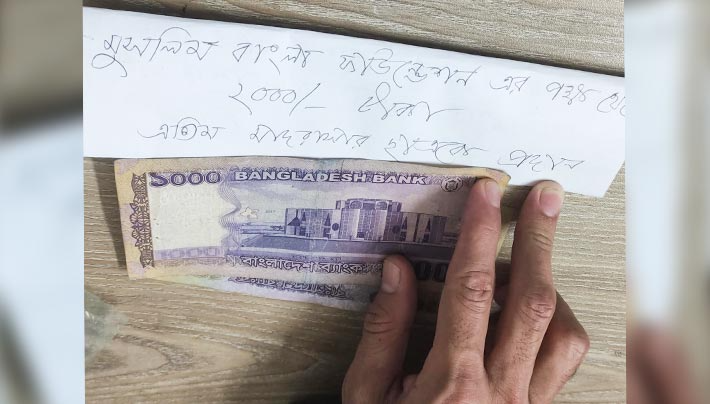 মুসলিম বাংলা ফাউন্ডেশন এর পক্ষ থেকে
২০০০/- টাকা
এতিম মাদরাসার ছাত্রকে প্রদান
১000 BANGLADESH BANK
বাংলাদেশ ব্যাংক